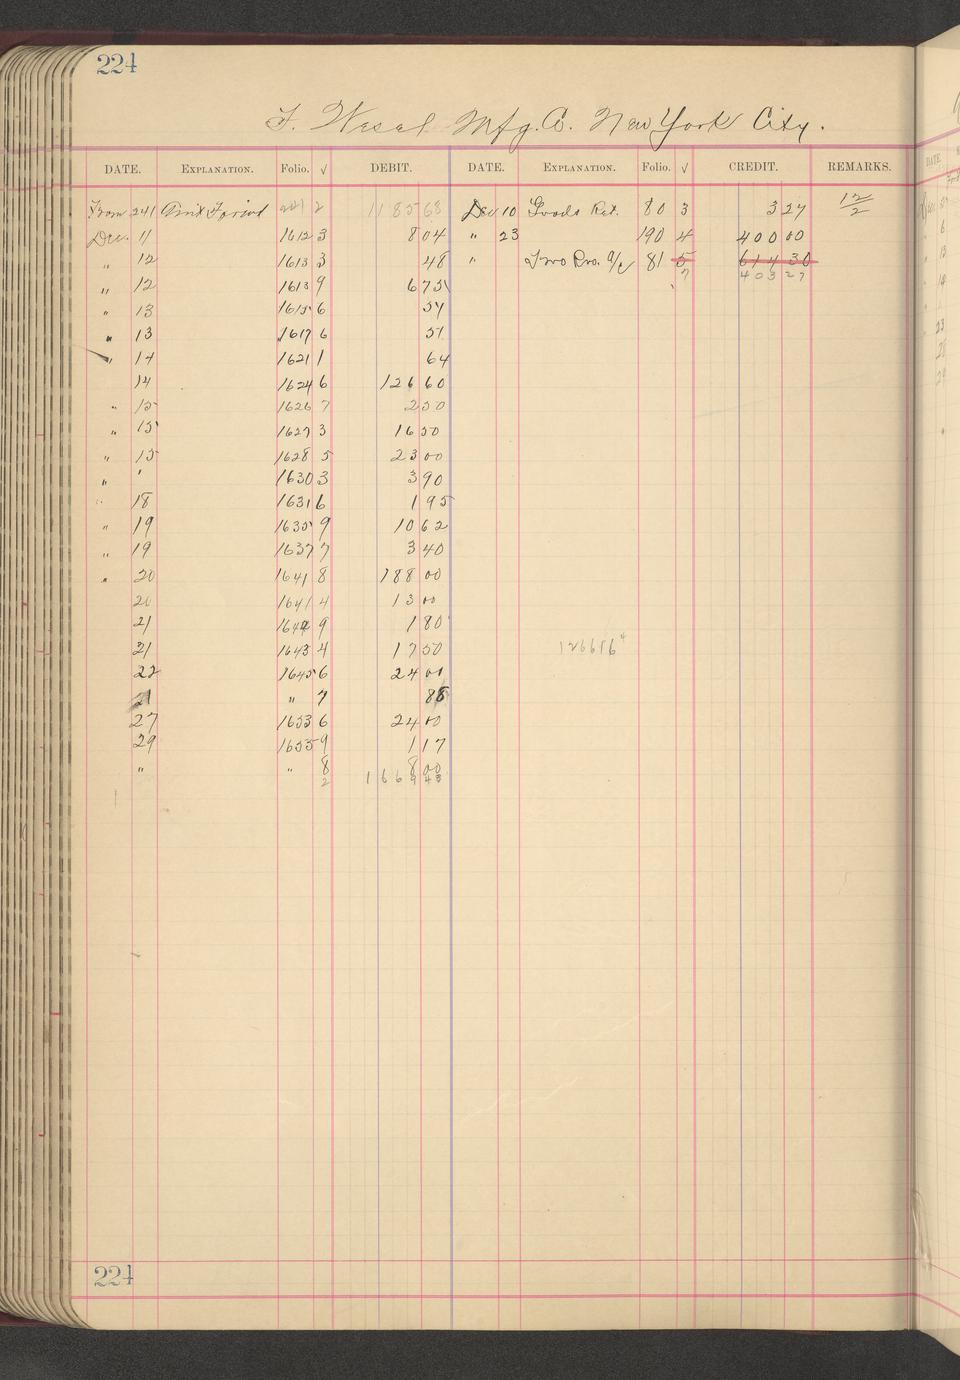 224
F. Wesel Mfg. Co. New York City.
DATE. EXPLANATION. Folio. √ DEBIT. DATE. EXPLANATION. Folio. √ CREDIT. REMARKS.
From 241 Amt Forwd 241 2 1185 68 Dec 10 Goods Ret. 80 3 3 27 12/2
Dec. 11 1612 3 8 04 " 23 190 4 400 00
" 12 1613 3 48 " 81 5 614 30
7 403 27
" 12 1613 9 6 75
" 13 1615 6 54
" 13 1617 6 51
" 14 1621 1 64
14 1624 6 126 60
" 15 1626 7 2 50
" 15 1627 3 16 50
" 15 1628 5 23 00
" " 1630 3 3 90
" 18 1631 6 1 95
" 19 1635 9 10 62
" 19 1637 7 3 40
" 20 1641 8 188 00
20 1641 4 13 00
21 1642 9 1 80
21 1643 4 17 50 126616 4
22 1645 6 24 00
21 " 7 88
27 1653 6 24 00
29 1655 9 1 17
" " 8 8 00
2 1669 43
224